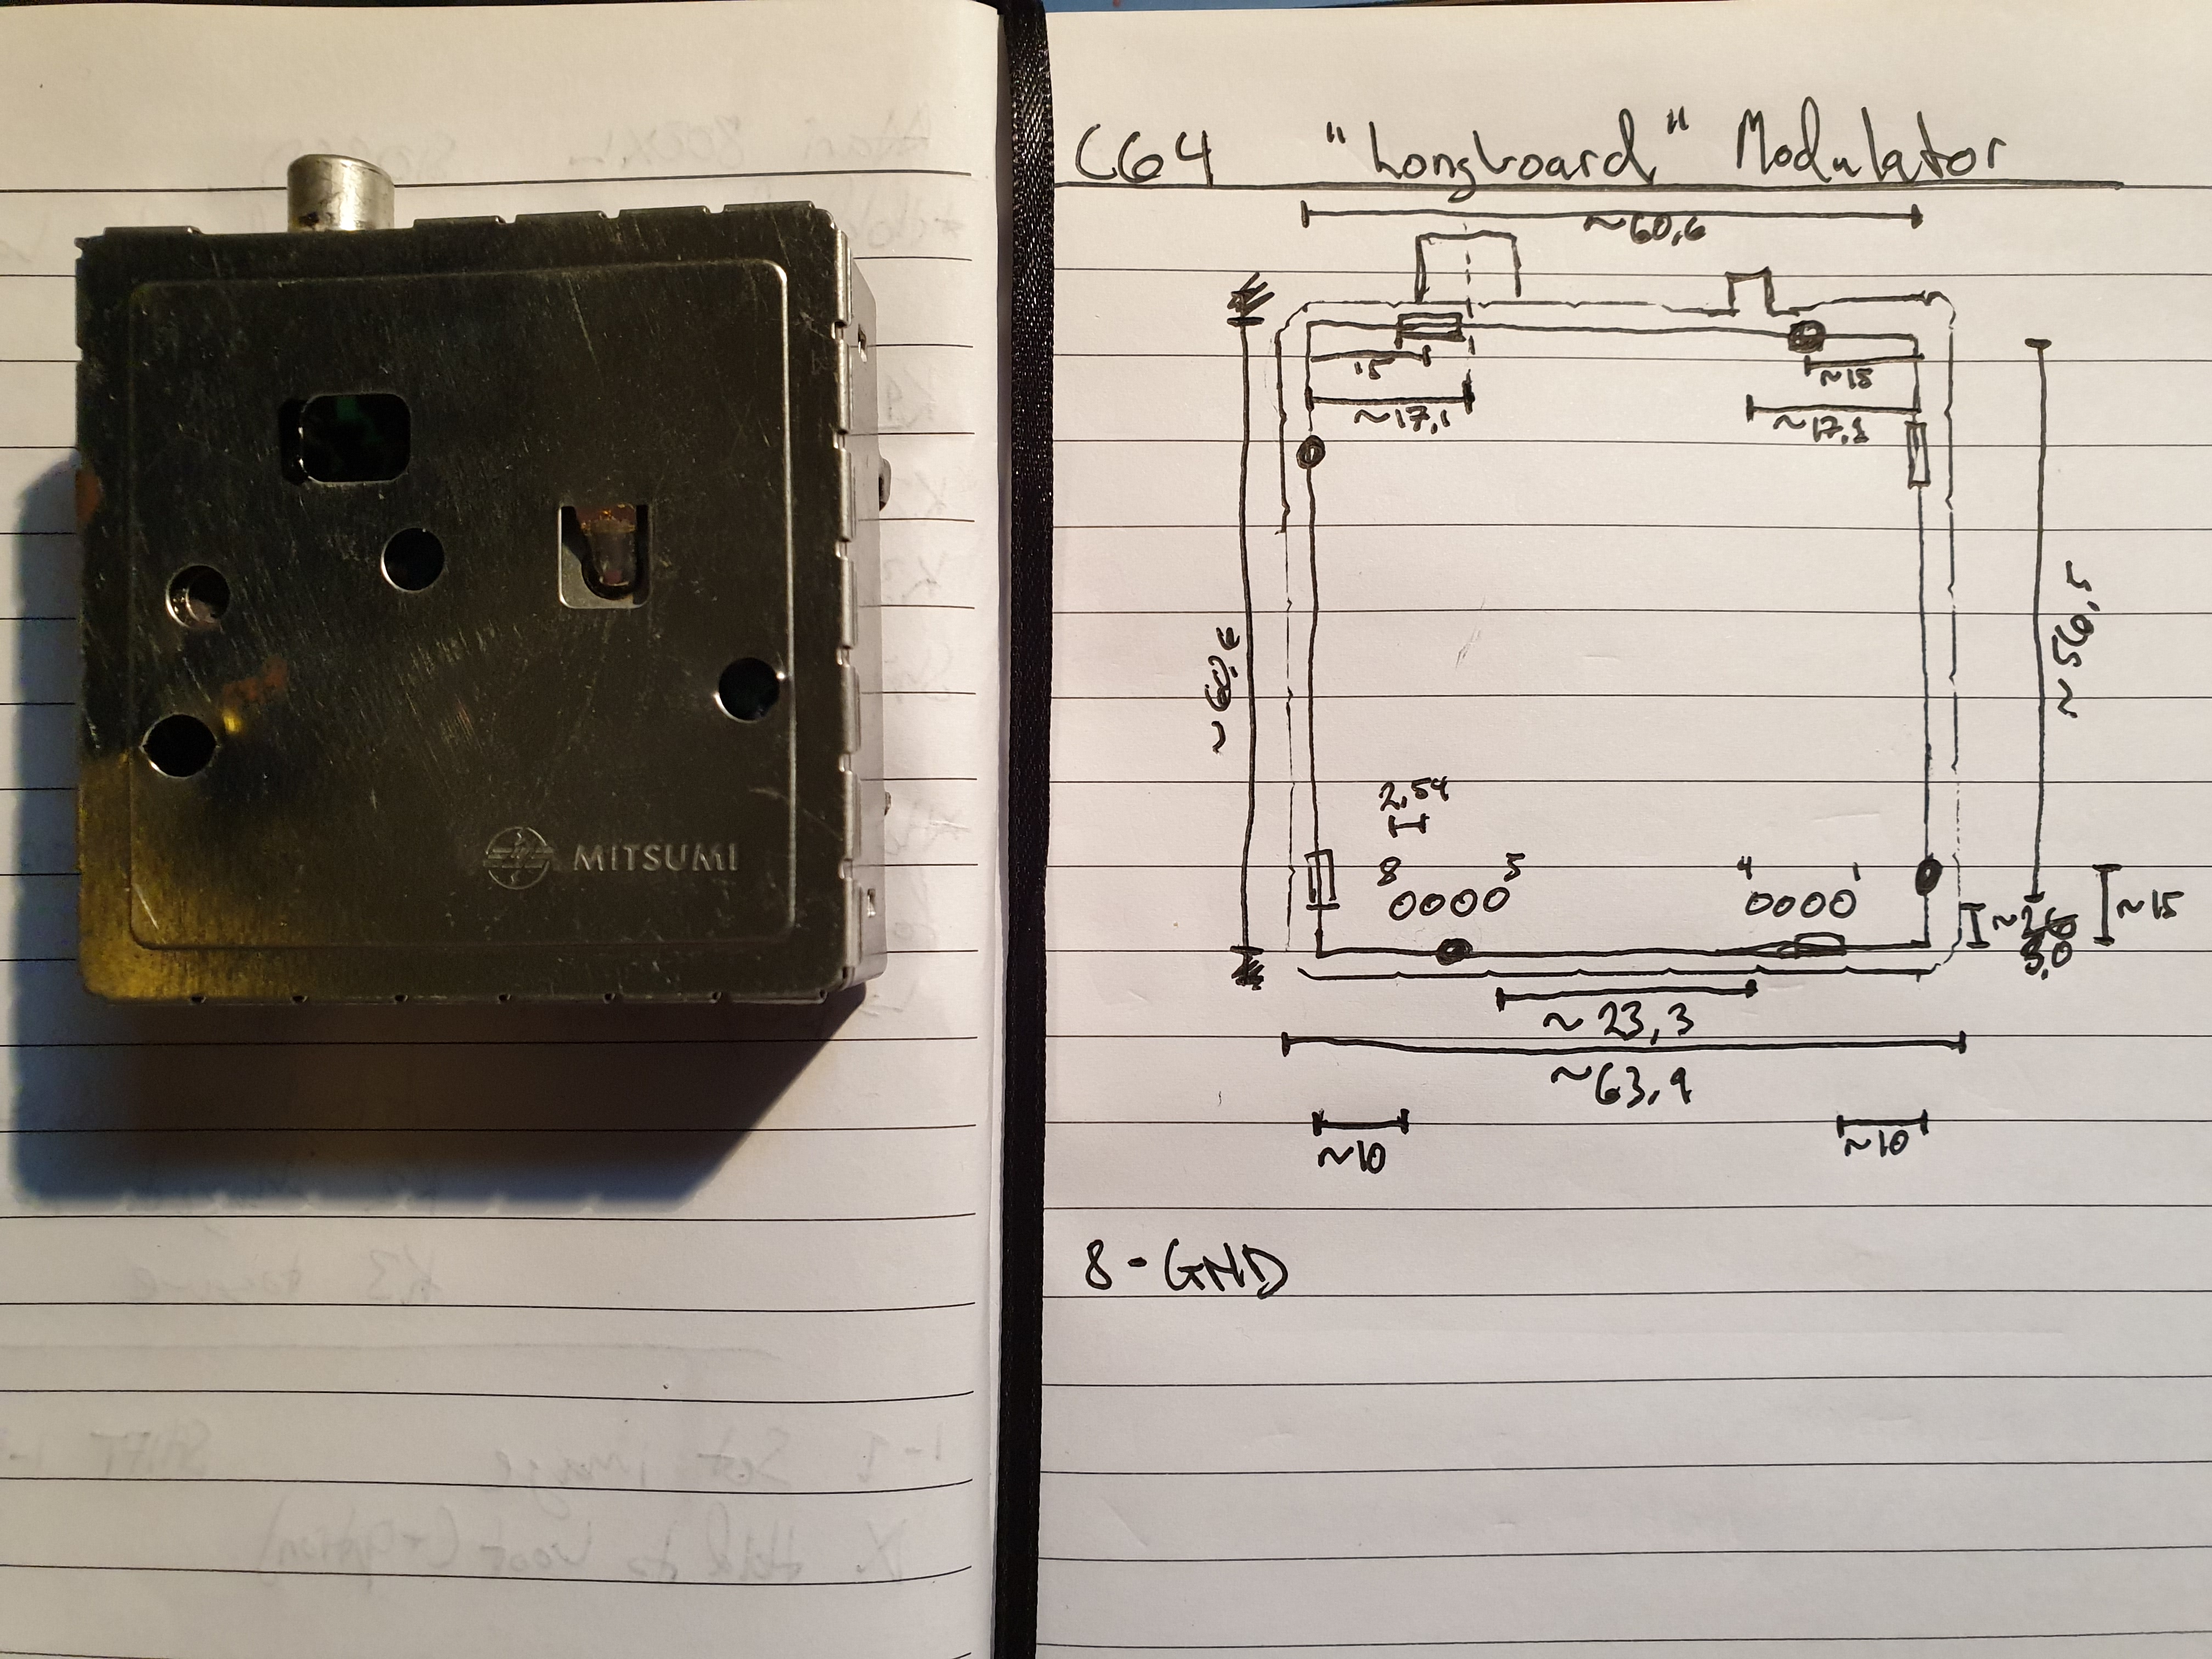 MITSUMI
C64 "Longboard" Modulator
~60,6
15
~15
~17,1
~17,1
~60,6
~56,5
2,54
8 5 4 1
~3,0
~15
~23,3
~63,9
~10 ~10
8-GND